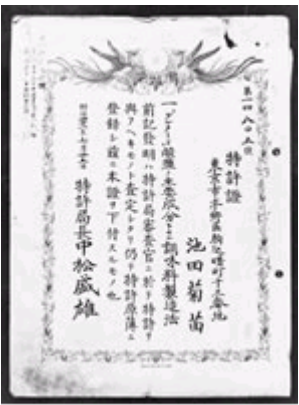 第一四八〇五號
特許證
東京市本郷區駒込曙町十三番地
池田菊苗
一、「グルタミン」酸鹽ヲ主要成分トセル調味料製造法
前記發明ハ特許局審査官ニ於テ特許ヲ
與フヘキモノト査定シタリ仍テ特許原簿ニ
登録シ茲ニ本證ヲ下付スルモノ也
特許局長中松盛雄